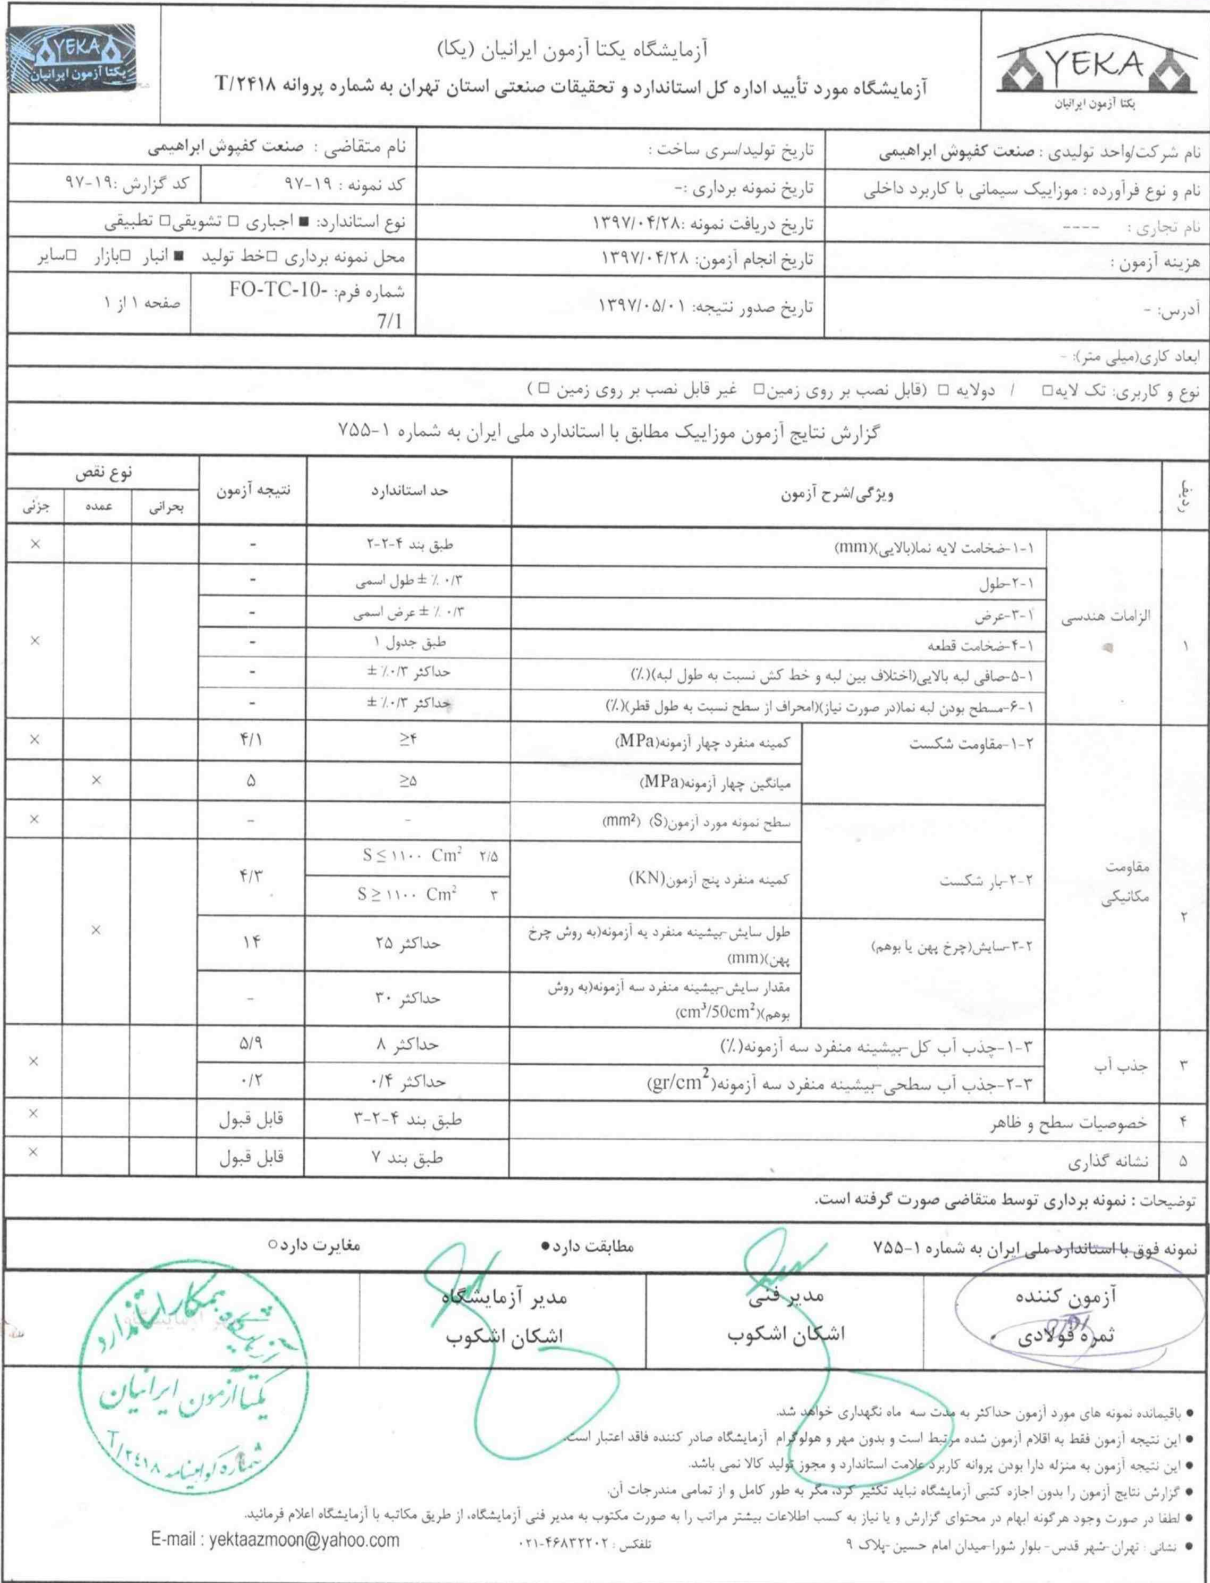 YEKA
یکتا آزمون ایرانیان
YEKA
یکتا آزمون ایرانیان
آزمایشگاه یکتا آزمون ایرانیان (یکا)
آزمایشگاه مورد تأیید اداره کل استاندارد و تحقیقات صنعتی استان تهران به شماره پروانه T/۲۴۱۸
نام شرکت/واحد تولیدی : صنعت کفپوش ابراهیمی
تاریخ تولید/سری ساخت :
نام متقاضی : صنعت کفپوش ابراهیمی
نام و نوع فرآورده : موزاییک سیمانی با کاربرد داخلی
تاریخ نمونه برداری :-
کد نمونه : ۱۹-۹۷
کد گزارش :۱۹-۹۷
نام تجاری : ----
تاریخ دریافت نمونه :۱۳۹۷/۰۴/۲۸
نوع استاندارد: ■ اجباری □ تشویقی□ تطبیقی
هزینه آزمون :
تاریخ انجام آزمون: ۱۳۹۷/۰۴/۲۸
محل نمونه برداری □خط تولید ■ انبار □بازار □سایر
آدرس: -
تاریخ صدور نتیجه: ۱۳۹۷/۰۵/۰۱
شماره فرم: FO-TC-10-
7/1
صفحه ۱ از ۱
ابعاد کاری(میلی متر): -
نوع و کاربری: تک لایه□ / دولایه □ (قابل نصب بر روی زمین□ غیر قابل نصب بر روی زمین □ )
گزارش نتایج آزمون موزاییک مطابق با استاندارد ملی ایران به شماره ۱-۷۵۵
ردیف
ویژگی/شرح آزمون
حد استاندارد
نتیجه آزمون
نوع نقص
بحرانی
عمده
جزئی
۱
الزامات هندسی
۱-۱-ضخامت لایه نما(بالایی)(mm)
طبق بند ۴-۲-۲
-
×
۲-۱-طول
۰/۳ ٪ ± طول اسمی
-
۳-۱-عرض
۰/۳ ٪ ± عرض اسمی
-
۴-۱-ضخامت قطعه
طبق جدول ۱
-
×
۵-۱-صافی لبه بالایی(اختلاف بین لبه و خط کش نسبت به طول لبه)(٪)
حداکثر ۰/۳٪ ±
-
۶-۱-مسطح بودن لبه نما(در صورت نیاز)(امحراف از سطح نسبت به طول قطر)(٪)
حداکثر ۰/۳٪ ±
-
۲
مقاومت
مکانیکی
۱-۲-مقاومت شکست
کمینه منفرد چهار آزمونه(MPa)
≥۴
۴/۱
×
میانگین چهار آزمونه(MPa)
≥۵
۵
×
۲-۲-بار شکست
سطح نمونه مورد آزمون(S) (mm²)
-
-
×
کمینه منفرد پنج آزمون(KN)
S ≤ ۱۱۰۰ Cm² ۲/۵
S ≥ ۱۱۰۰ Cm² ۳
۴/۳
۳-۲-سایش(چرخ پهن یا بوهم)
طول سایش-بیشینه منفرد یه آزمونه(به روش چرخ
پهن)(mm)
حداکثر ۲۵
۱۴
×
مقدار سایش-بیشینه منفرد سه آزمونه(به روش
بوهم)(cm³/50cm²)
حداکثر ۳۰
-
۳
جذب آب
۱-۳-جذب آب کل-بیشینه منفرد سه آزمونه(٪)
حداکثر ۸
۵/۹
×
۲-۳-جذب آب سطحی-بیشینه منفرد سه آزمونه(gr/cm²)
حداکثر ۰/۴
۰/۲
۴
خصوصیات سطح و ظاهر
طبق بند ۴-۲-۳
قابل قبول
×
۵
نشانه گذاری
طبق بند ۷
قابل قبول
×
توضیحات : نمونه برداری توسط متقاضی صورت گرفته است.
نمونه فوق با استاندارد ملی ایران به شماره ۱-۷۵۵
مطابقت دارد●
مغایرت دارد○
آزمون کننده
ثمره فولادی
مدیر فنی
اشکان اشکوب
مدیر آزمایشگاه
اشکان اشکوب
آزمایشگاه همکار استاندارد
یکتا آزمون ایرانیان
شماره گواهینامه T/۲۴۱۸
● باقیمانده نمونه های مورد آزمون حداکثر به مدت سه ماه نگهداری خواهد شد.
● این نتیجه آزمون فقط به اقلام آزمون شده مرتبط است و بدون مهر و هولوگرام آزمایشگاه صادر کننده فاقد اعتبار است.
● این نتیجه آزمون به منزله دارا بودن پروانه کاربرد علامت استاندارد و مجوز تولید کالا نمی باشد.
● گزارش نتایج آزمون را بدون اجازه کتبی آزمایشگاه نباید تکثیر کرد، مگر به طور کامل و از تمامی مندرجات آن.
● لطفا در صورت وجود هرگونه ابهام در محتوای گزارش و یا نیاز به کسب اطلاعات بیشتر مراتب را به صورت مکتوب به مدیر فنی آزمایشگاه، از طریق مکاتبه با آزمایشگاه اعلام فرمائید.
● نشانی : تهران-شهر قدس- بلوار شورا-میدان امام حسین-پلاک ۹
تلفکس : ۰۲۱-۴۶۸۳۲۲۰۲
E-mail : yektaazmoon@yahoo.com